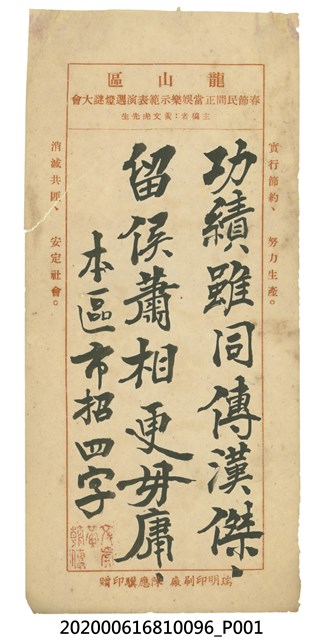 龍山區
春節民間正當娛樂示範表演迎燈謎大會
主稿者：黃文虎先生
實行節約、 努力生產。
功績雖同傳漢傑、
留侯蕭相更毋庸、
本區市招四字
消滅共匪、 安定社會。
瑞明印刷廠 陳應聯印贈
202000616810096_P001